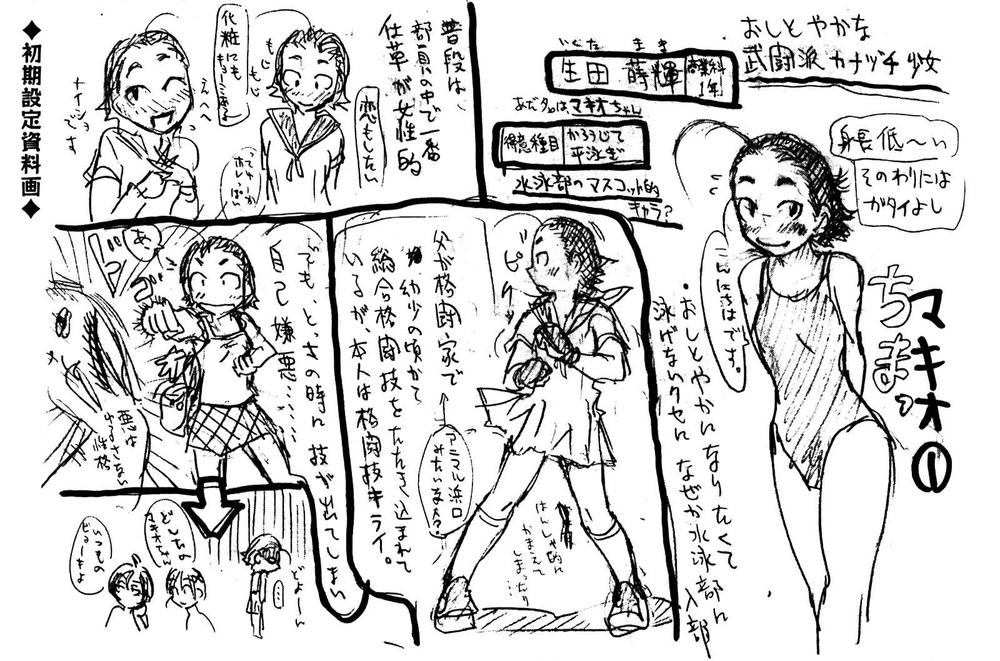 おしとやかな
武闘派カナヅチ少女
いくた まき
生田 蒔輝
商業科
1年
あだ名はマキオちゃん
得意種目
かろうじて
平泳ぎ
水泳部のマスコット的
キャラ?
身長低〜い
そのわりには
ガタイよし
マキオ①
ちまっ
こんにちはです。
・おしとやかになりたくて
泳げないクセに なぜか水泳部に入部
普段は
部員の中で一番
仕草が女性的
恋もしたい
もじもじ
化粧にも
えへへ
ナイショ
です
父が格闘家で
幼少の頃から
総合格闘技をたたき込まれて
いるが、本人は格闘技キライ。
アニマル浜口
みたいな人?
ピリッ
はんしゃ的に
かまえて
しまったり
でも、とっさの時に技が出てしまい
自己嫌悪……
あっ
悪は
ゆるさない
性格
どよーん
どしたの
マキオちゃん
いつもの
びょーきよ
◆初期設定資料画◆